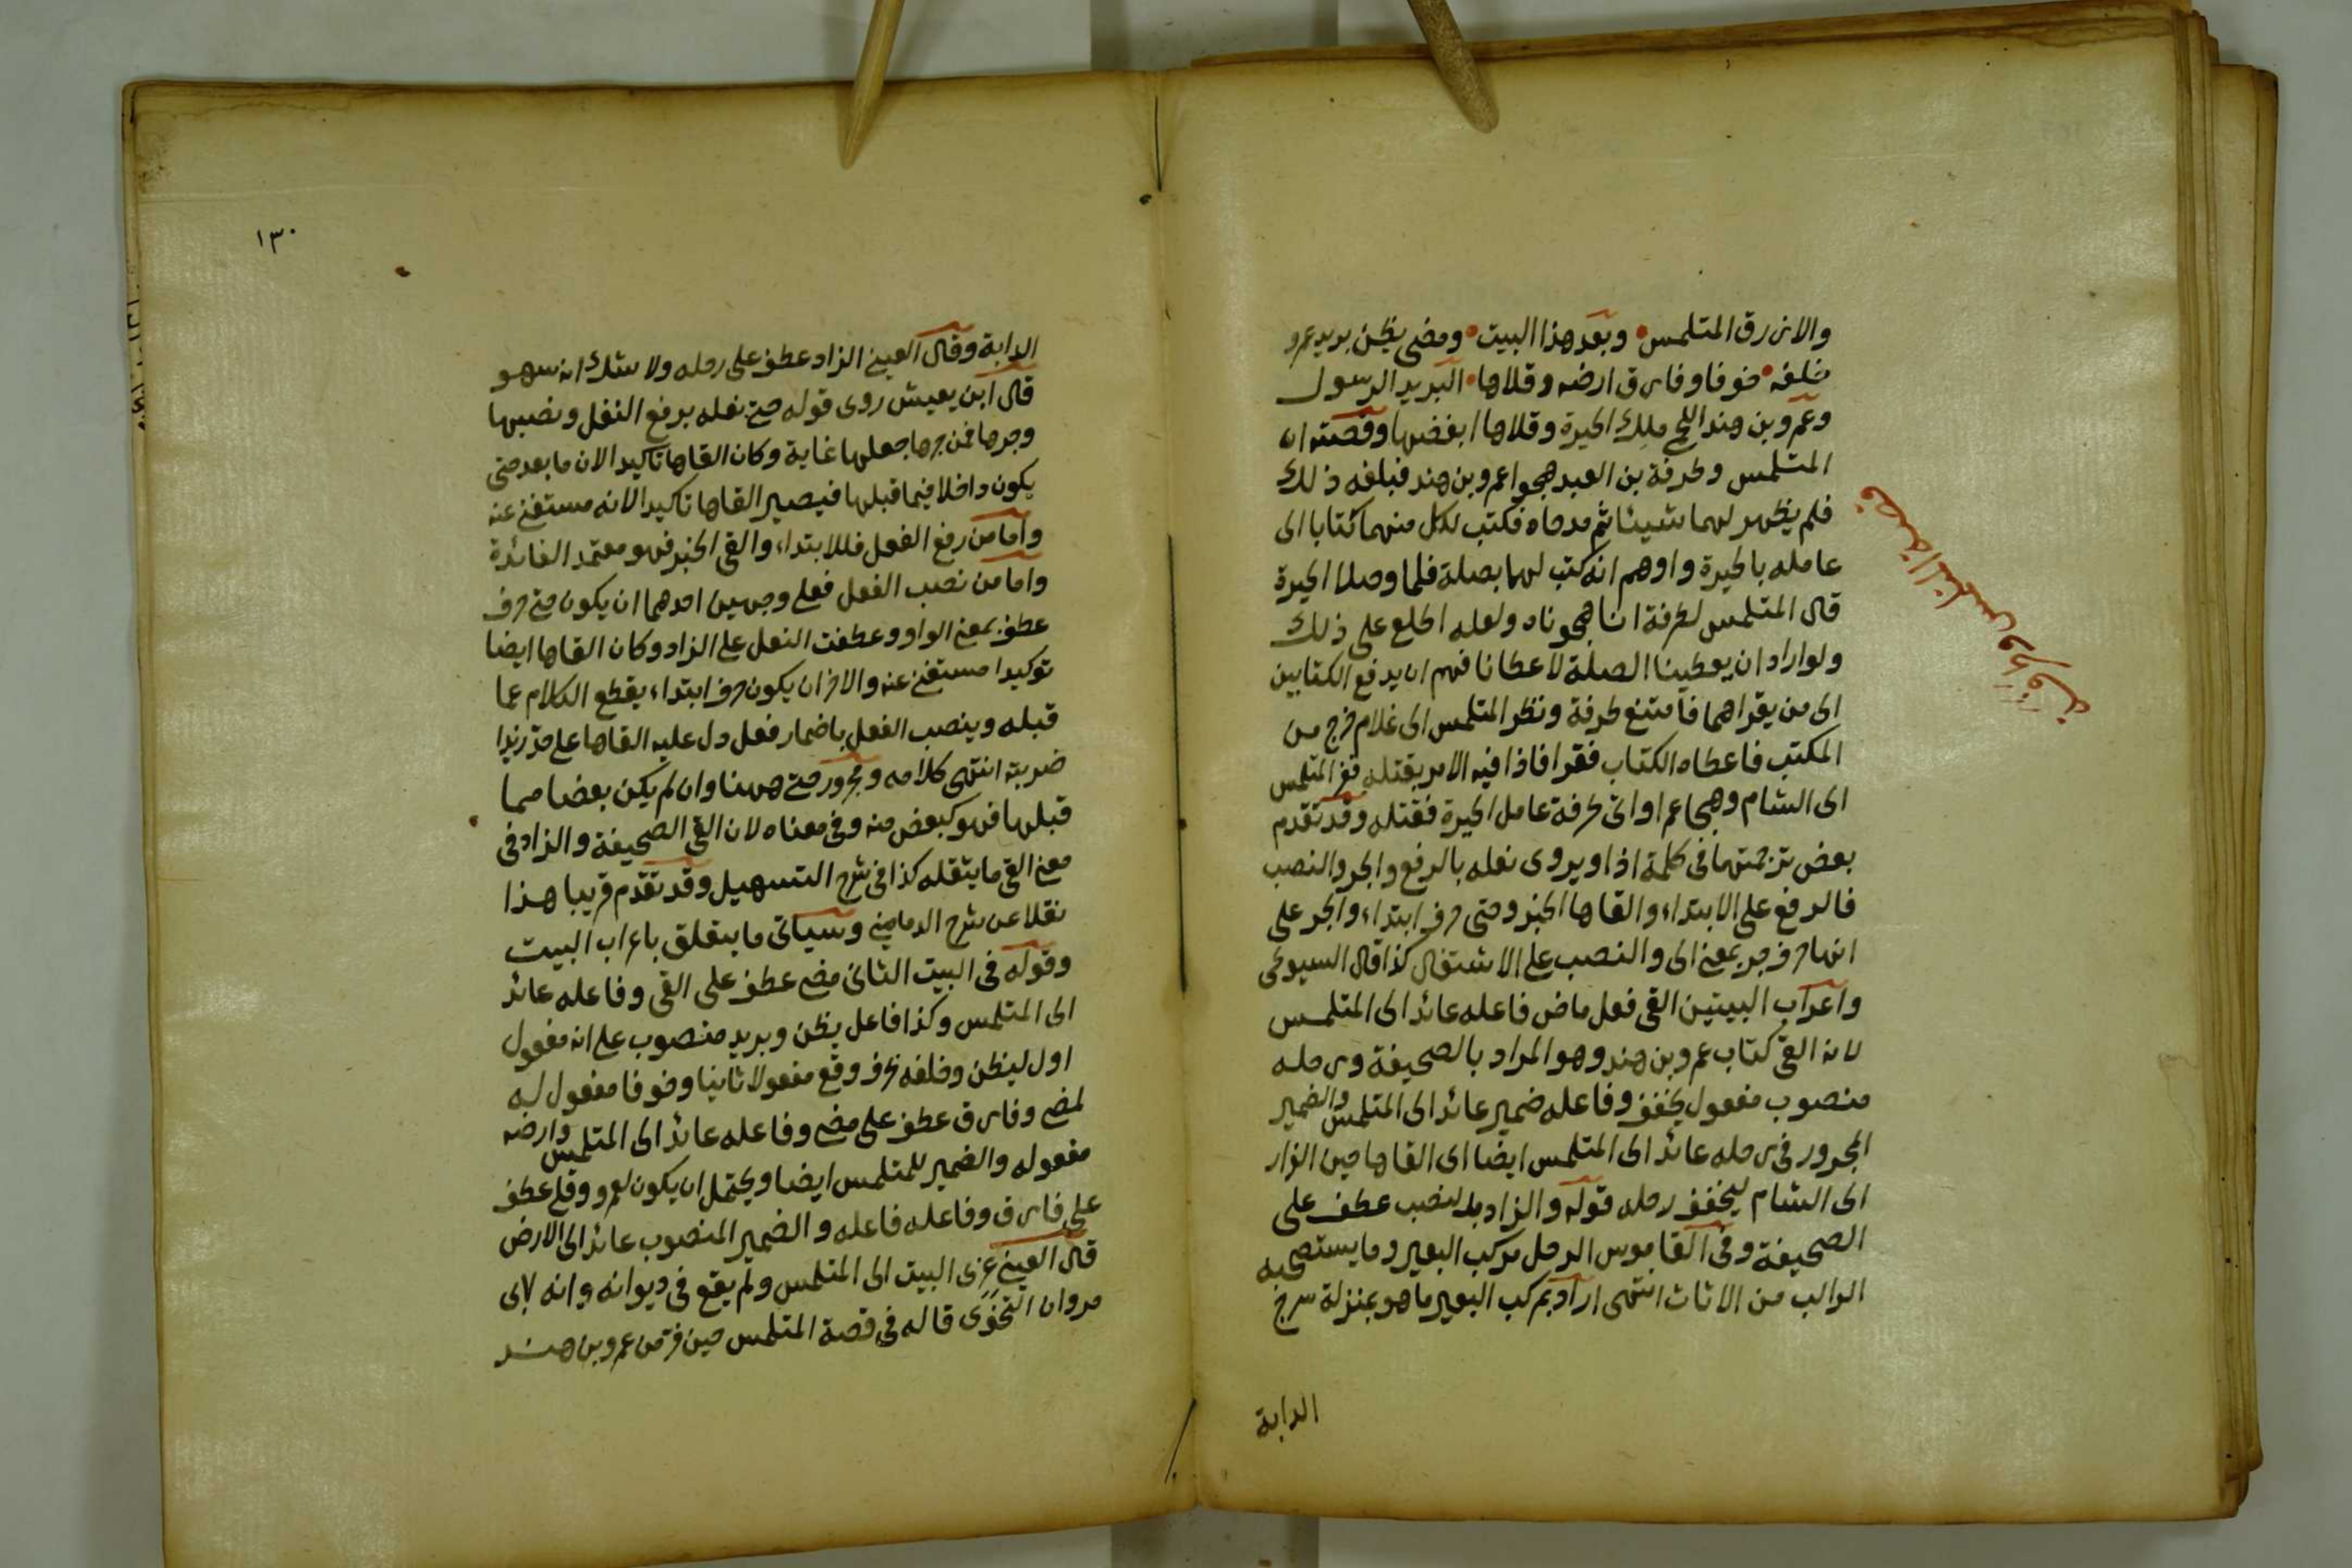 والازرق المتلمس • وبعد هذا البيت • ومضى يظن بريد عمرو
خلفه • خوفا وفارق ارضه وقلاها • البريد الرسول
وعمرو بن هند اللخمي ملك الحيرة وقلاها ابغضها وقصته ان
المتلمس وطرفة بن العبد هجوا عمرو بن هند فبلغه ذلك
فلم يظهر لهما شيئا ثم مدحاه فكتب لكل منهما كتابا الى
عامله بالحيرة واوهم انه كتب لهما بصلة فلما وصلا الحيرة
قال المتلمس لطرفة انا هجوناه ولعله اطلع على ذلك
ولو اراد ان يعطينا الصلة لاعطانا فهم ان يدفع الكتابين
الى من يقراهما فامتنع طرفة ونظر المتلمس الى غلام خرج من
المكتب فاعطاه الكتاب فقرا فاذا فيه الامر بقتله ففر المتلمس
الى الشام وهجا عمرا واتى طرفة عامل الحيرة فقتله وقد تقدم
بعض ترجمتهما فى كلمة اذا ويروى نعله بالرفع والجر والنصب
فالرفع على الابتداء والقاها الخبر وحتى حرف ابتداء والجر على
انها حرف جر بمعنى الى والنصب على الاشتغال كذا قال السيوطى
واعراب البيتين القى فعل ماض فاعله عائد الى المتلمس
لانه القى كتاب عمرو بن هند وهو المراد بالصحيفة ورحله
منصوب مفعول يخفف وفاعله ضمير عائد الى المتلمس والضمير
المجرور فى رحله عائد الى المتلمس ايضا اى القاها حين الفرار
الى الشام ليخفف رحله قوله والزاد بالنصب عطف على
الصحيفة وفى القاموس الرحل مركب البعير وما يستصحبه
الراكب من الاثاث انتهى اراد بمركب البعير ما هو بمنزلة سرج
الدابة
قصة المتلمس وطرفة
١٣٠
الدابة وقال العينى الزاد عطف على رحله ولا شك انه سهو
قال ابن يعيش روى قوله حتى نعله برفع النعل ونصبها
وجرها فمن جرها جعلها غاية وكان القاها تاكيدا لان ما بعد حتى
يكون داخلا فيما قبلها فيصير القاها تاكيدا لانه مستغنى عنه
واما من رفع الفعل فللابتداء والقى الخبر فهو معتمد الفائدة
واما من نصب الفعل فعلى وجهين احدهما ان يكون حتى حرف
عطف بمعنى الواو وعطفت النعل على الزاد وكان القاها ايضا
توكيدا مستغنى عنه والاخر ان يكون حرف ابتداء يقطع الكلام عما
قبله وينصب الفعل باضمار فعل دل عليه القاها على حد زيدا
ضربته انتهى كلامه ومجرور حتى ههنا وان لم يكن بعضا مما
قبلها فهو كبعض منه وفى معناه لان القى الصحيفة والزاد فى
معنى القى ما يثقله كذا فى شرح التسهيل وقد تقدم قريبا هذا
نقلا عن شرح الدمامينى وسياتى ما يتعلق باعراب البيت
وقوله فى البيت الثانى مضى عطف على القى وفاعله عائد
الى المتلمس وكذا فاعل يظن وبريد منصوب على انه مفعول
اول ليظن وخلفه ظرف وقع مفعولا ثانيا وخوفا مفعول له
لمضى وفارق عطف على مضى وفاعله عائد الى المتلمس وارضه
مفعوله والضمير للمتلمس ايضا ويحتمل ان يكون لعمرو وقلى عطف
على فارق وفاعله فاعله والضمير المنصوب عائد الى الارض
قال العينى عزى البيت الى المتلمس ولم يقع فى ديوانه وانه لابى
مروان النحوى قاله فى قصة المتلمس حين فر من عمرو بن هند